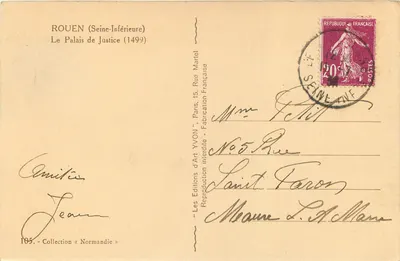 ROUEN (Seine-Inférieure)
Le Palais de Justice (1499)
Amitiés
Jean
105. - Collection « Normandie »
- Les Editions d'Art YVON - Paris, 15, Rue Martel
Reproduction interdite - Fabrication Française
REPUBLIQUE FRANÇAISE
20c
POSTES
SEINE-INF
Mme Petit
No 5 Rue
Saint Faron
Meaux S. & Marne